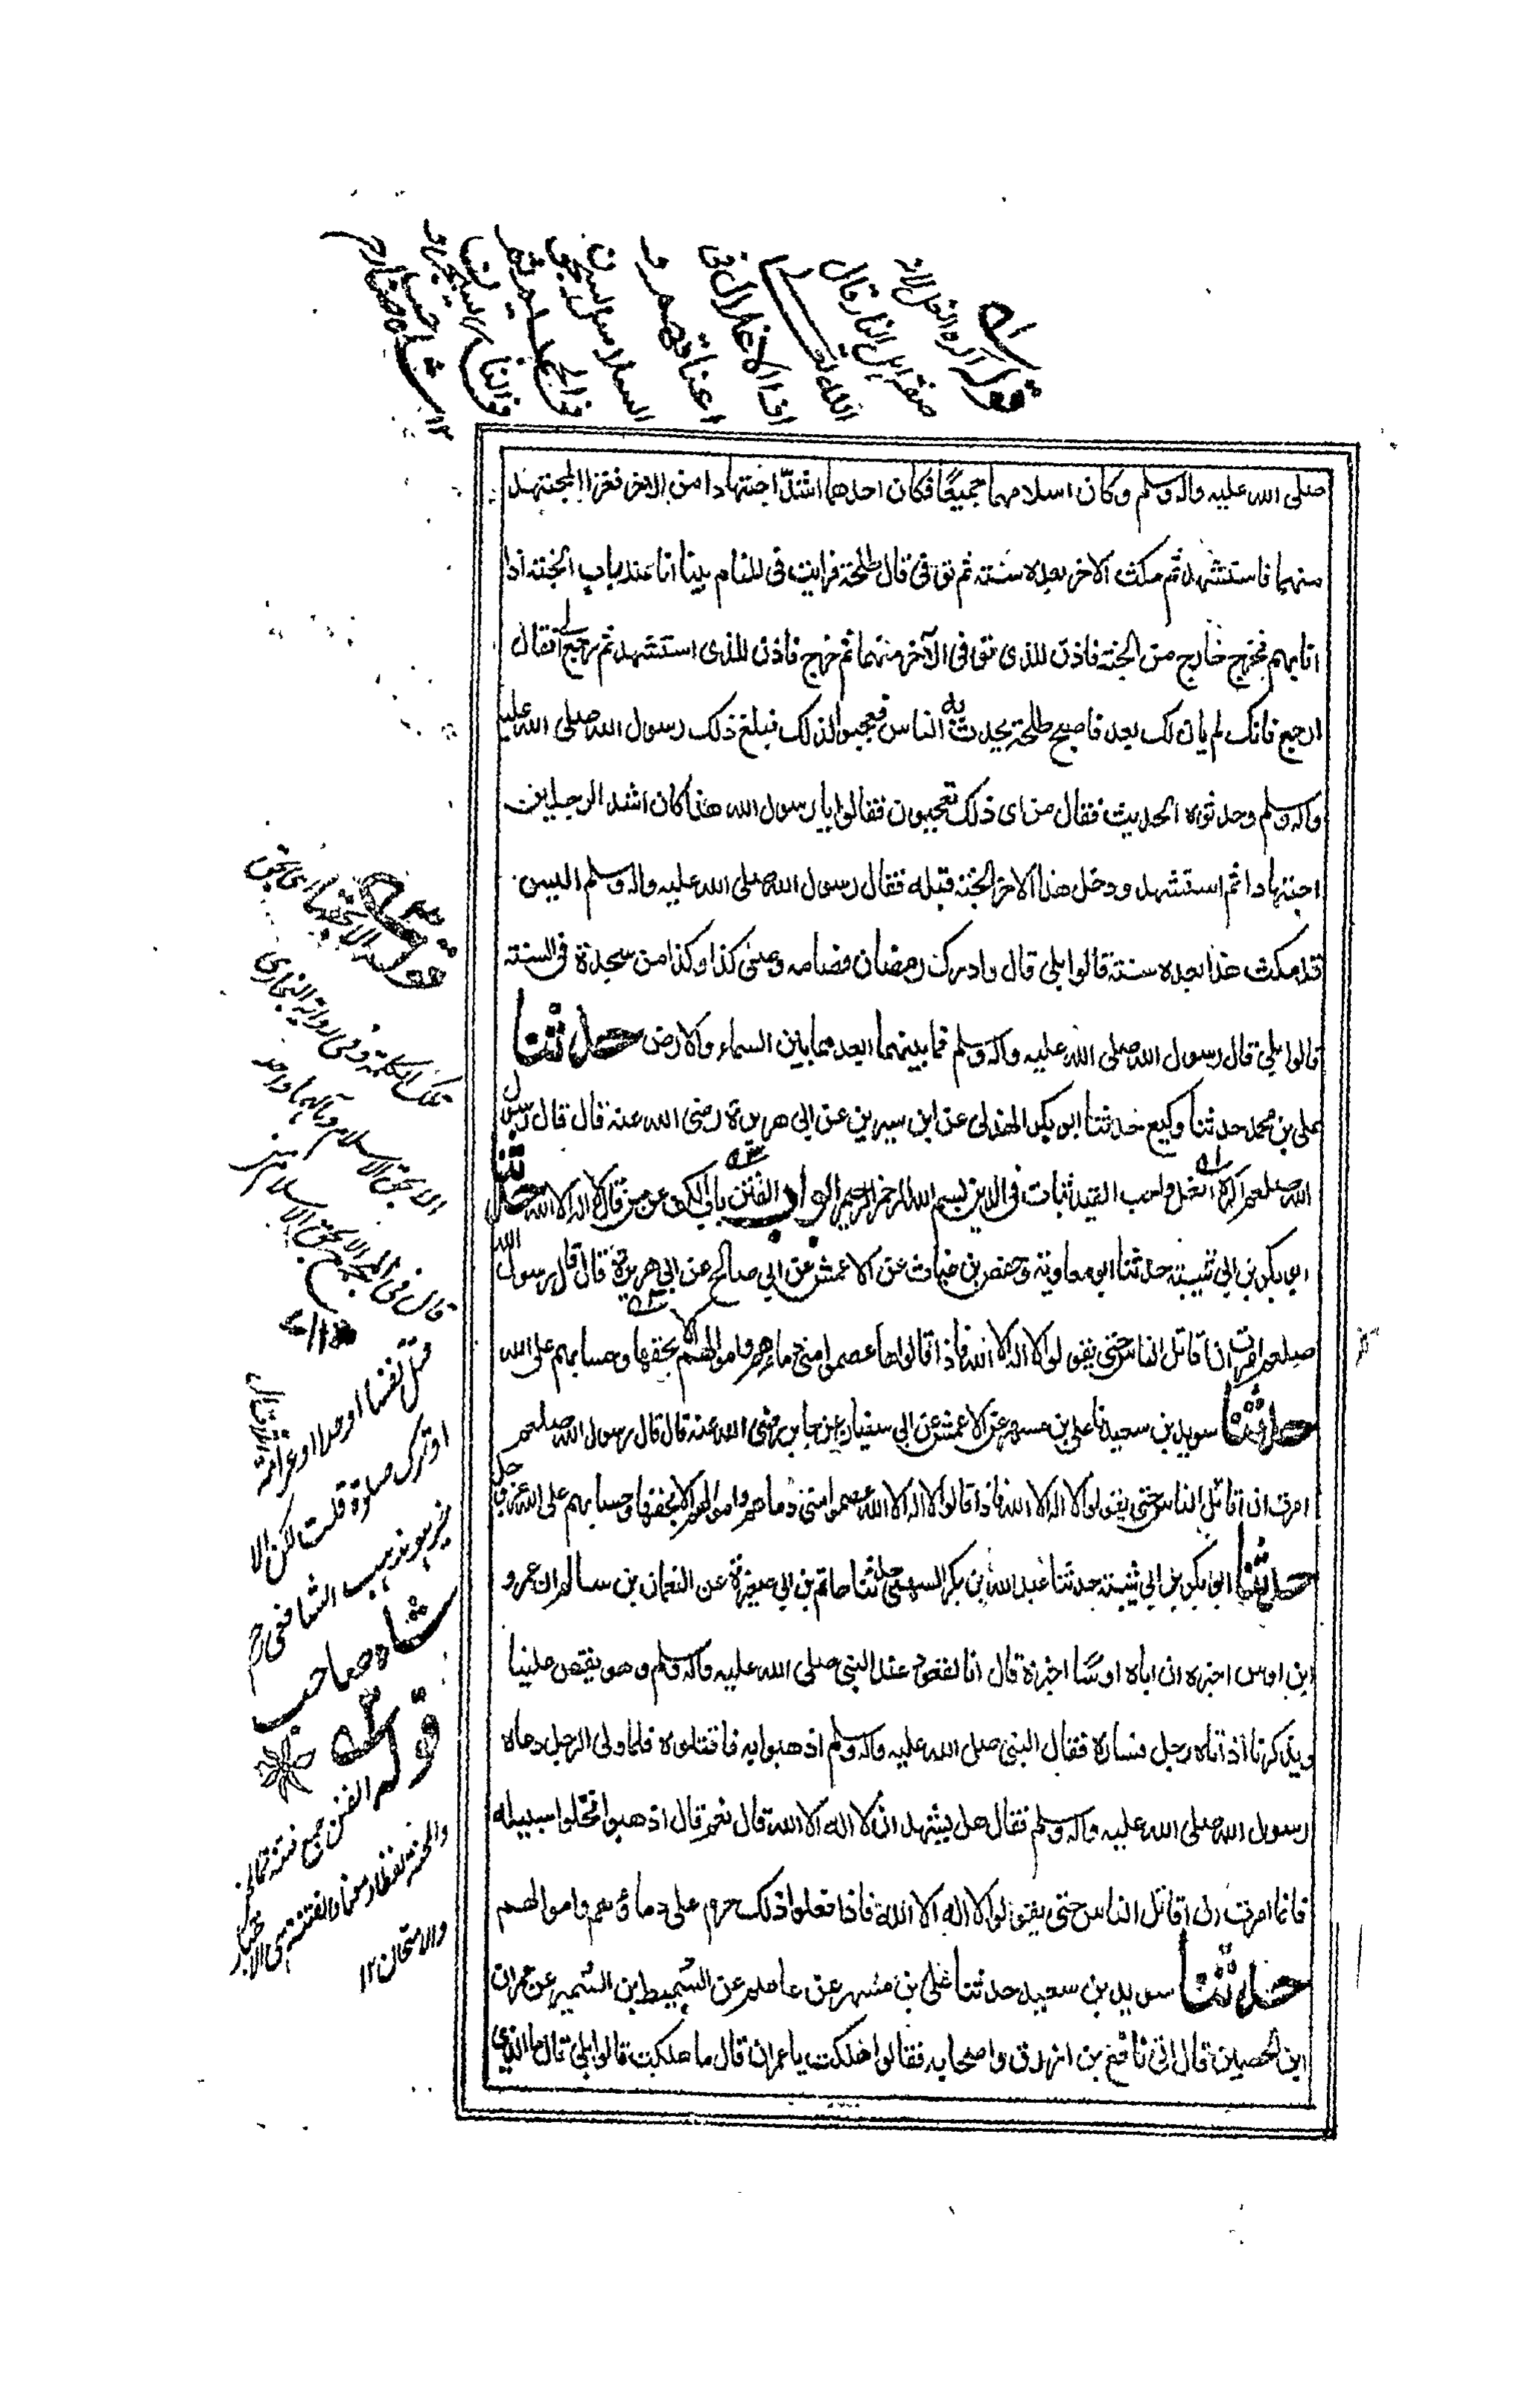 قوله اكره الغل لانه
صفة اهل النار قال
الله تعالى
اذ الاغلال فى
اعناقهم و
السلاسل
شاه صاحب ١٢
صلى الله عليه واله وسلم وكان اسلامهما جميعًا فكان احدهما اشدّ اجتهادا من الاخر فغزا المجتهد
منهما فاستشهد ثم مكث الاخر بعده سنة ثم توفى قال طلحة فرايت فى المنام بينا انا عند باب الجنة اذا
انا بهم فخرج خارج من الجنة فاذن للذى توفى الآخر منهما ثم خرج فاذن للذى استشهد ثم رجع الى فقال
ارجع فانك لم يان لك بعد فاصبح طلحة يحدث به الناس فعجبوا لذلك فبلغ ذلك رسول الله صلى الله عليه
واله وسلم وحدثوه الحديث فقال من اى ذلك تعجبون فقالوا يا رسول الله هذا كان اشد الرجلين
اجتهادا ثم استشهد ودخل هذا الاخر الجنة قبله فقال رسول الله صلى الله عليه واله وسلم اليس
قد مكث هذا بعده سنة قالوا بلى قال وادرك رمضان فصامه وصلى كذا وكذا من سجدة فى السنة
قالوا بلى قال رسول الله صلى الله عليه واله وسلم فما بينهما ابعد مما بين السماء والارض حدثنا
على بن محمد حدثنا وكيع حدثنا ابو بكر الهذلى عن ابن سيرين عن ابى هريرة رضى الله عنه قال قال رسول
الله صلعم اكره الغل واحب القيد ثبات فى الدين بسم الله الرحمن الرحيم ابواب الفتن باب الكف عن من قال لا اله الا الله حدثنا
ابو بكر بن ابى شيبة حدثنا ابو معاوية وحفص بن غياث عن الاعمش عن ابى صالح عن ابى هريرة قال قال رسول الله
صلعم امرت ان اقاتل الناس حتى يقولوا لا اله الا الله فاذا قالوها عصموا منى دماءهم واموالهم الا بحقها وحسابهم على الله
حدثنا سويد بن سعيد نا على بن مسهر عن الاعمش عن ابى سفيان عن جابر رضى الله عنه قال قال رسول الله صلعم
امرت ان اقاتل الناس حتى يقولوا لا اله الا الله فاذا قالوا لا اله الا الله عصموا منى دماءهم واموالهم الا بحقها وحسابهم على الله عز وجل
حدثنا ابو بكر بن ابى شيبة حدثنا عبد الله بن بكر السهمى حدثنا حاتم بن ابى صغيرة عن النعمان بن سالم ان عمرو
ابن اوس اخبره ان اباه اوسًا اخبره قال انا لقعود عند النبى صلى الله عليه واله وسلم وهو يقص علينا
ويذكرنا اذ اتاه رجل فساره فقال النبى صلى الله عليه واله وسلم اذهبوا به فاقتلوه فلما ولى الرجل دعاه
رسول الله صلى الله عليه واله وسلم فقال هل يشهد ان لا اله الا الله قال نعم قال اذهبوا فخلوا سبيله
فانما امرت ان اقاتل الناس حتى يقولوا لا اله الا الله فاذا فعلوا ذلك حرم على دماؤهم واموالهم
حدثنا سويد بن سعيد حدثنا على بن مسهر عن عاصم عن السميط ابن السمير عن عمران
ابن الحصين قال اتى نافع بن ازرق واصحابه فقالوا هلكت يا عمران قال ما هلكت قالوا بلى قال ما الذى
قوله الا بحقها اى بحق
تلك الكلمة وفى رواية البخارى
الا بحق الاسلام ومآلهما واحد
قال فى المجمع الا بحق الاسلام من
قتل نفس او حد او غرامة
او ترك صلوة قلت لكن الاخير
هو مذهب الشافعى رح
شاه صاحب
قوله الفتن جمع فتنة كالمحن
والمحنة لفظا ومعنا والفتنة هى الاختبار
والامتحان ١٢